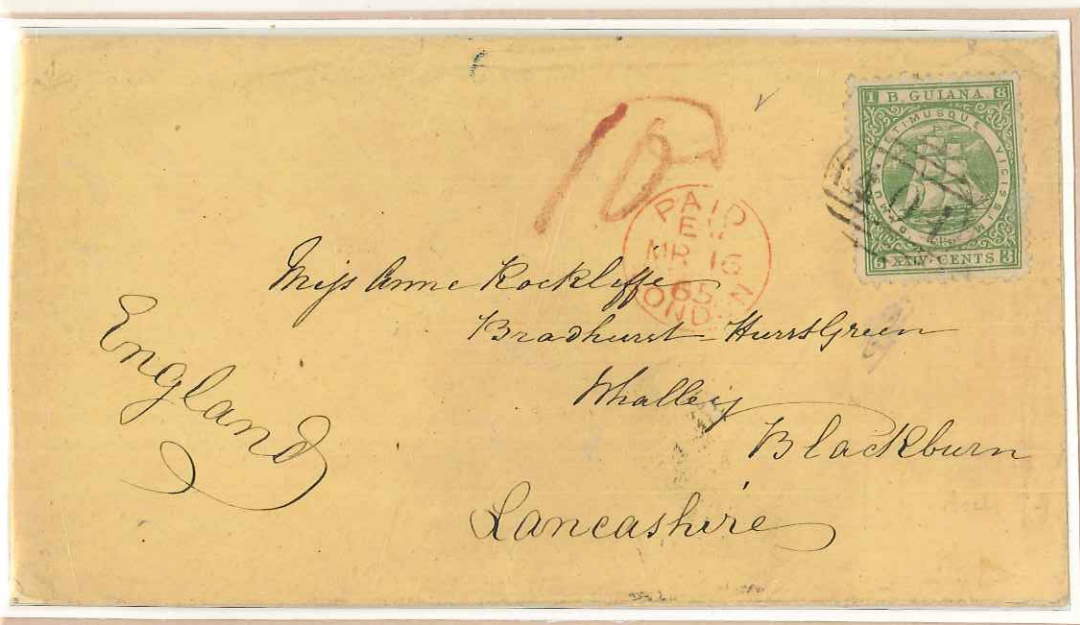 1 B. GUIANA. 8
DAMUS PETIMUSQUE VICISSIM
6 XXIV·CENTS 3
10
PAID
EW
MR 16
65
LONDON
Miss Anne Rockliffe
Bradhurst Hurst Green
Whalley
Blackburn
Lancashire
England